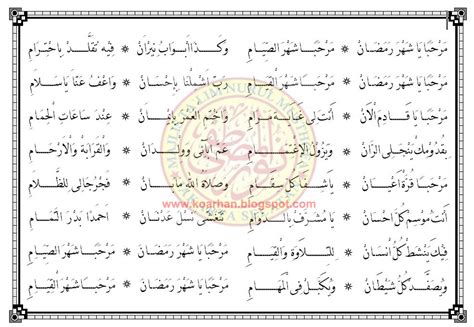 مَرْحَبًا يَا شَهْرَ رَمَضَانْ * مَرْحَبًا شَهْرَ الصِّيَامِ وَكَذَا أَبْوَابُ نِيْرَانْ * فِيْهِ تُقْلَدْ بِاحْتِرَامِ
مَرْحَبًا يَا شَهْرَ رَمَضَانْ * مَرْحَبًا شَهْرَ الْقِيَامِ رَبِّ اشْمَلْنَا بِإِحْسَانْ * وَاعْفُ عَنَّا يَاسَلَامِ
مَرْحَبًا يَا قَادِمَ الْآنْ * أَنْتَ لِي غَايَةْ مَرَامِ وَاخْتِمِ الْعُمْرَ بِإِيْمَانْ * عِنْدَ سَاعَاتِ الْحِمَامِ
بِقُدُومِكْ يَنْجَلِي الرَّانْ * وَيَزُولُ الْاِغْتِمَامِ عَمَّ آبَائِي وَوِلْدَانْ * وَالْقَرَابَةْ وَالْأَرْحَامِ
مَرْحَبًا قُرَّةَ أَعْيَانْ * يَاشِفَا كُلِّ سِقَامِ وَصَلَاةُ اللهِ مَابَانْ * فَجْرُ جَالِي لِلظَّلَامِ
أَنْتَ مَوْسِمْ كُلِّ احْسَانْ * يَا مُشَرَّفْ بِالدَّوَامِ تَتَغَشَّى نَسْلَ عَدْنَانْ * اَحْمَدَا بَدْرَ التَّمَامِ
فِيكَ يَنْشَطْ كُلُّ أَنْسَانْ * لِلتِّلَاوَةْ وَالْقِيَامِ مَرْحَبًا يَا شَهْرَ رَمَضَانْ * مَرْحَبًا شَهْرَ الصِّيَامِ
وَيُصَفَّدْ كُلُّ شَيْطَانْ * وَيُكَبَّلْ فِي الْمَهَامِ مَرْحَبًا يَا شَهْرَ رَمَضَانْ * مَرْحَبًا شَهْرَ الْقِيَامِ
www.koarhan.blogspot.com